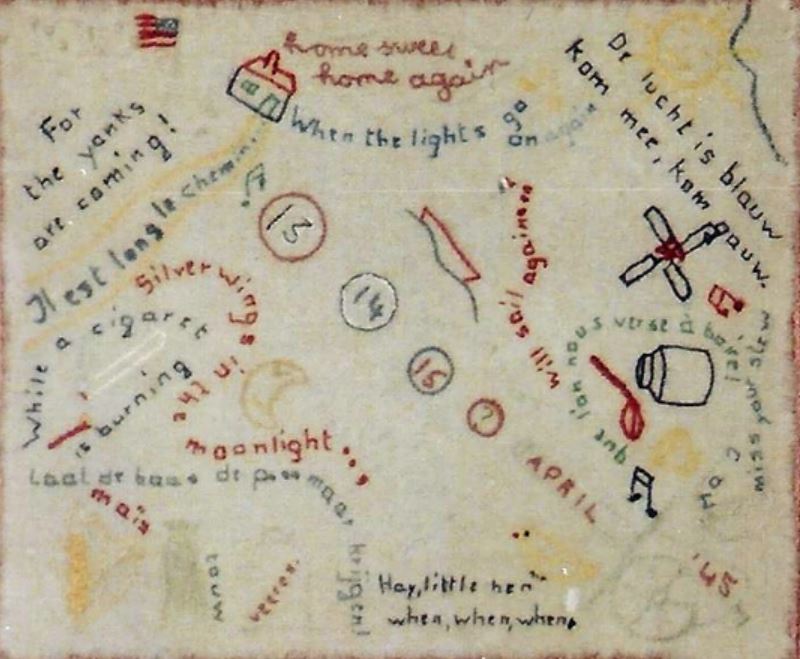 home sweet
home again
For
the yanks
are coming!
When the lights go
on again
De lucht is blauw
kom mee, kom gauw.
Il est long le chemin
13
14
15
?
APRIL
'45
Silver wings in the
moonlight...
While a cigaret
is burning
will sail again
que l'on nous verse à boire!
miss your slew
Laat de baas de maar krijgen!
mais
touw
veeren.
Hay, little hen
when, when, when,